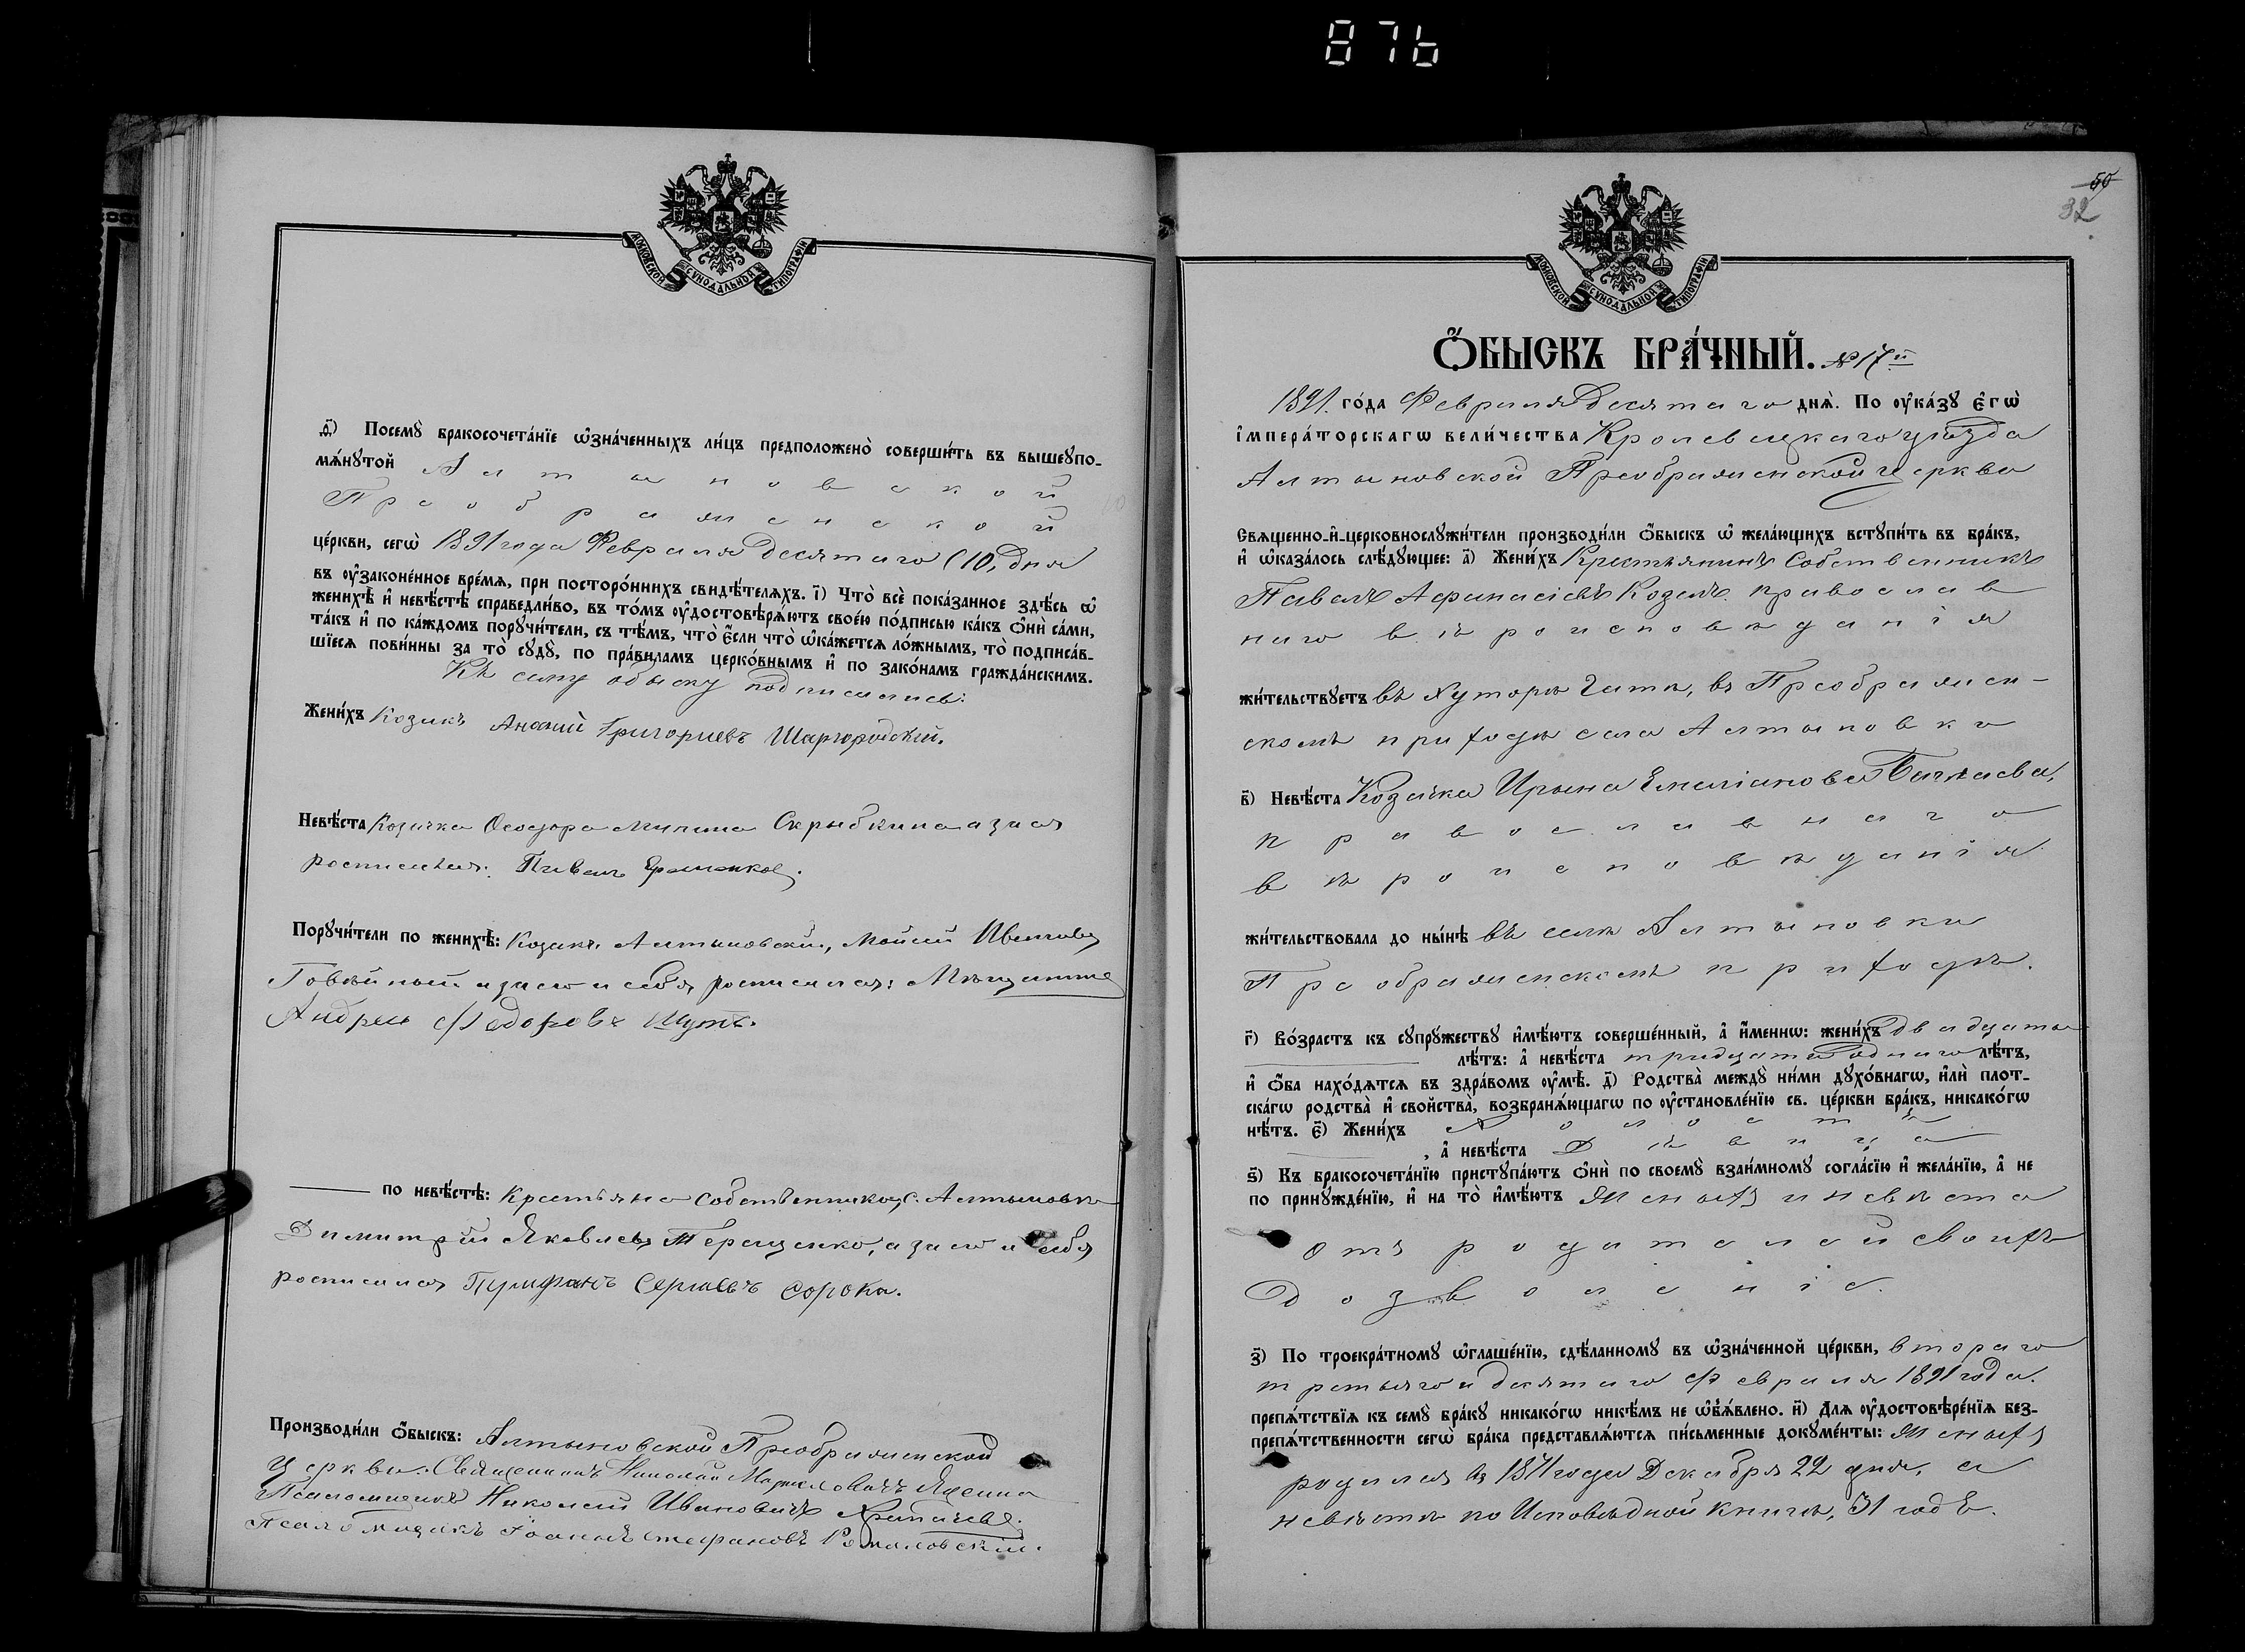 876
МОСКОВСКОЙ СУНОДАЛЬНОЙ ТИПОГРАФІИ
д҃) Посемꙋ̀ бракосочета́нїе ѡ҆зна́ченныхъ ли́цъ предположено̀ соверши́ть въ вышеꙋпо-
мѧ́нꙋтой Алтыновской
Преображенской
це́ркви, сегѡ̀ 1891 года Февраля десятаго (10, дня
въ ᲂу҆законе́нное вре́мѧ, при посторо́ннихъ свидѣ́телѧхъ. і҃) Что̀ всѐ пока́занное здѣ́сь ѡ҆
женихѣ̀ и҆ невѣ́стѣ справедли́во, въ то́мъ ᲂу҆достовѣрѧ́ютъ свое́ю по́дписью ка́къ ѻ҆нѝ са́ми,
та́къ и҆ по ка́ждомъ порꙋчи́тели, съ тѣ́мъ, что̀ є҆́сли что̀ ѡ҆ка́жетсѧ ло́жнымъ, то̀ подписа́в-
шїесѧ пови́нны за то̀ сꙋдꙋ̀, по пра́виламъ церко́внымъ и҆ по зако́намъ гражда́нскимъ.
Къ сему обыску подписались:
Жени́хъ Козакъ Григориевъ Шаргородскій.
Невѣ́ста Козачка Скрыбкина а за ея
росписался: Павелъ
Порꙋчи́тели по женихѣ̀: Козакъ Алтыновскій, Мойсей Ивановъ
Говѣйный а за его и себя росписался: Мѣщанинъ
Андрей Федоровъ Шутъ.
по невѣ́стѣ: Крестьяне собственники, с. Алтыновки
Димитрій Яковлевъ Терещенко, а за его и себя
росписался Сергиевъ Сорока.
Производи́ли ѻ҆́быскъ: Алтыновской Преображенской
церкви: Священникъ Николай
Псаломщикъ Николай Ивановичъ
Псаломщикъ Іоаннъ Стефановъ
50
32
МОСКОВСКОЙ СУНОДАЛЬНОЙ ТИПОГРАФІИ
Ѻ҆́БЫСКЪ БРА́ЧНЫЙ. № 17й
1891. го́да Февраля Десятаго днѧ̀. По ᲂу҆ка́зꙋ є҆гѡ̀
і҆мпера́торскагѡ вели́чества Кролевецкаго уѣзда
Алтыновской Преображенской церкви
Свѧщенно-и҆-церковнослꙋжи́тели производи́ли ѻ҆́быскъ ѡ҆ жела́ющихъ встꙋпи́ть въ бра́къ,
и҆ ѡ҆каза́лось слѣ́дꙋющее: а҃) Жени́хъ Крестьянинъ собственникъ
Павелъ Афанасіевъ Козелъ православ
наго вѣроисповѣданія
жи́тельствꙋетъ въ хуторѣ Гатъ, въ Преображен-
скомъ приходѣ села Алтыновки
в҃) Невѣ́ста Козачка Ирына Емеліанова
православнаго
вѣроисповѣданія
жи́тельствовала до ны́нѣ въ селѣ Алтыновки
Преображенскомъ приходѣ.
г҃) Во́зрастъ къ сꙋпрꙋжествꙋ и҆мѣ́ютъ соверше́нный, а҆ и҆́меннѡ: жени́хъ двадцати
лѣ́тъ: а҆ невѣ́ста тридцати одного лѣ́тъ,
и҆ ѻ҆́ба нахо́дѧтсѧ въ здра́вомъ ᲂу҆мѣ̀. д҃) Родства̀ междꙋ̀ ни́ми дꙋхо́внагѡ, и҆лѝ плот-
ска́гѡ родства̀ и҆ свойства̀, возбранѧ́ющагѡ по ᲂу҆становле́нїю св. це́ркви бра́къ, никако́гѡ
нѣ́тъ. є҃) Жени́хъ Холостъ
, а҆ невѣ́ста Дѣвица
ѕ҃) Къ бракосочета́нїю пристꙋпа́ютъ ѻ҆нѝ по своемꙋ̀ взаи́мномꙋ согла́сїю и҆ жела́нїю, а҆ не
по принꙋжде́нїю, и҆ на то̀ и҆мѣ́ютъ Женихъ и невѣста
отъ родителей своихъ
дозволеніе.
з҃) По троекра́тномꙋ ѡ҆глаше́нїю, сдѣ́ланномꙋ въ ѡ҆зна́ченной це́ркви, втораго
третьяго и десятаго Февраля 1891 года.
препѧ́тствїѧ къ семꙋ̀ бра́кꙋ никако́гѡ никѣ́мъ не ѡ҆б̾ѧ́влено. и҃) Длѧ ᲂу҆достовѣре́нїѧ без-
препѧ́тственности сегѡ̀ бра́ка представлѧ́ютсѧ пи́сьменные докꙋме́нты: Женихъ
родился въ 1871 года Декабря 22 дня, а
невѣстѣ по Исповѣдной книгѣ, 31 годъ.